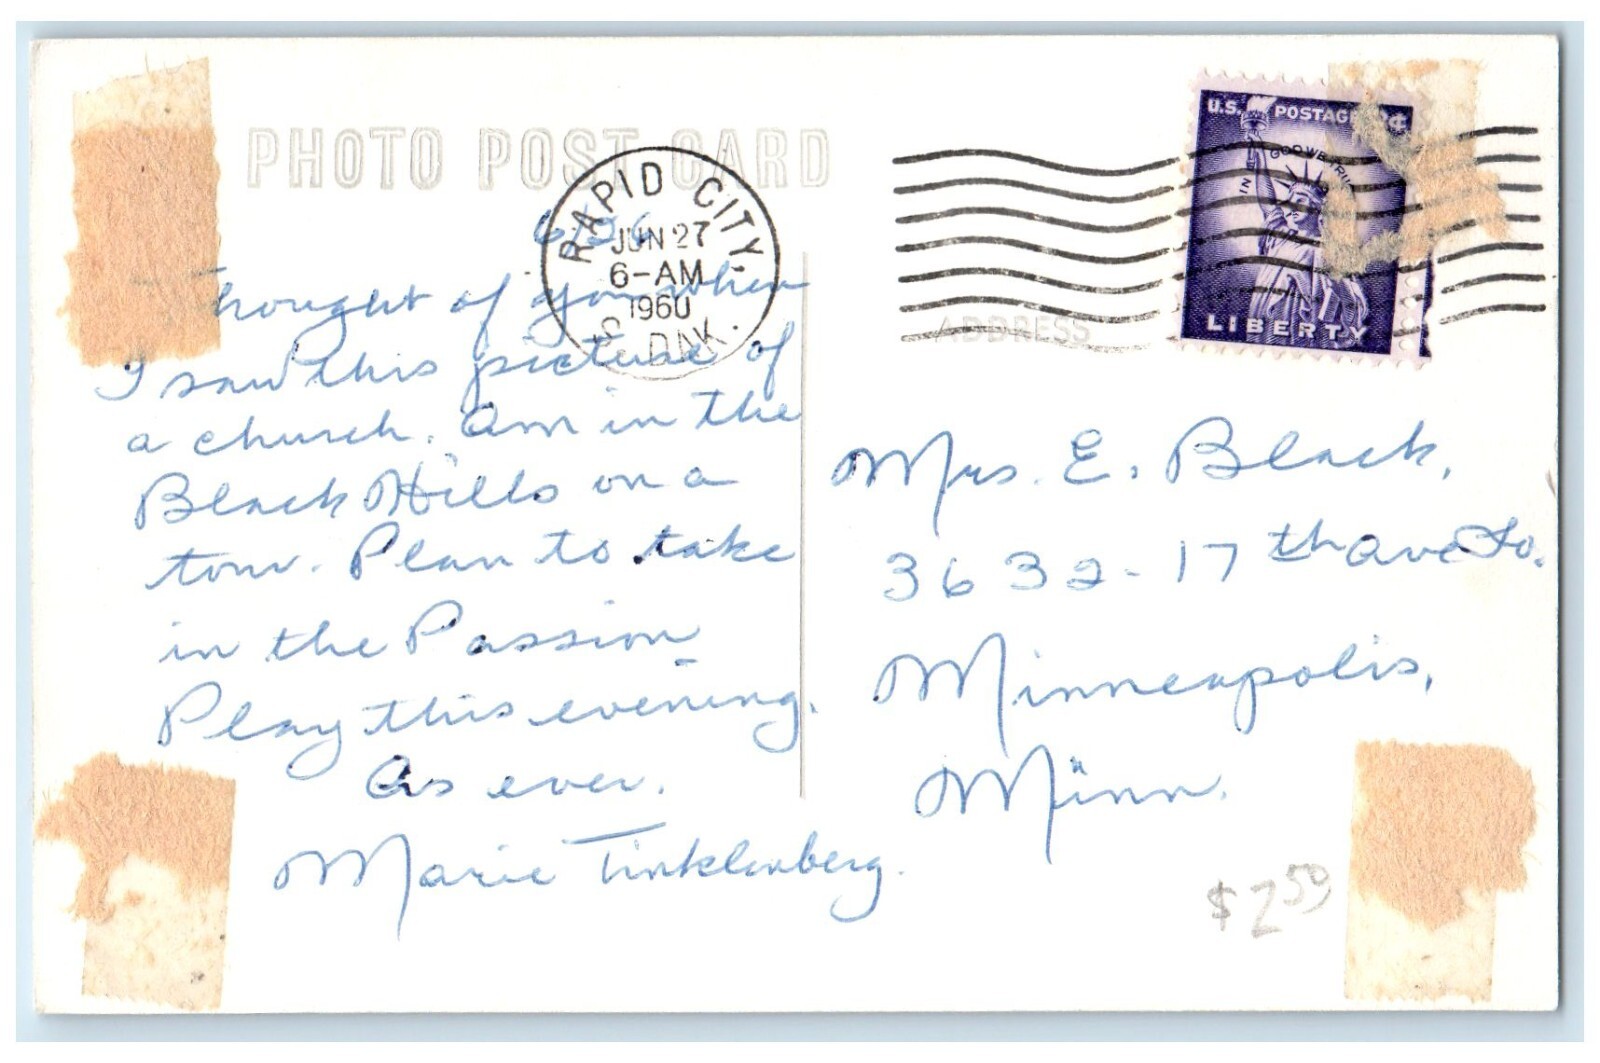 PHOTO POST CARD
RAPID CITY
JUN 27
6-AM
1960
S. DAK.
U.S. POSTAGE 3¢
IN GOD WE TRUST
LIBERTY
ADDRESS
Thought of you when
I saw this picture of
a church. Am in the
Black Hills on a
tour. Plan to take
in the Passion
Play this evening.
As ever.
Marie Tinklenberg.
Mrs. E. Black,
3632-17th ave So.
Minneapolis,
Minn.
$2.50